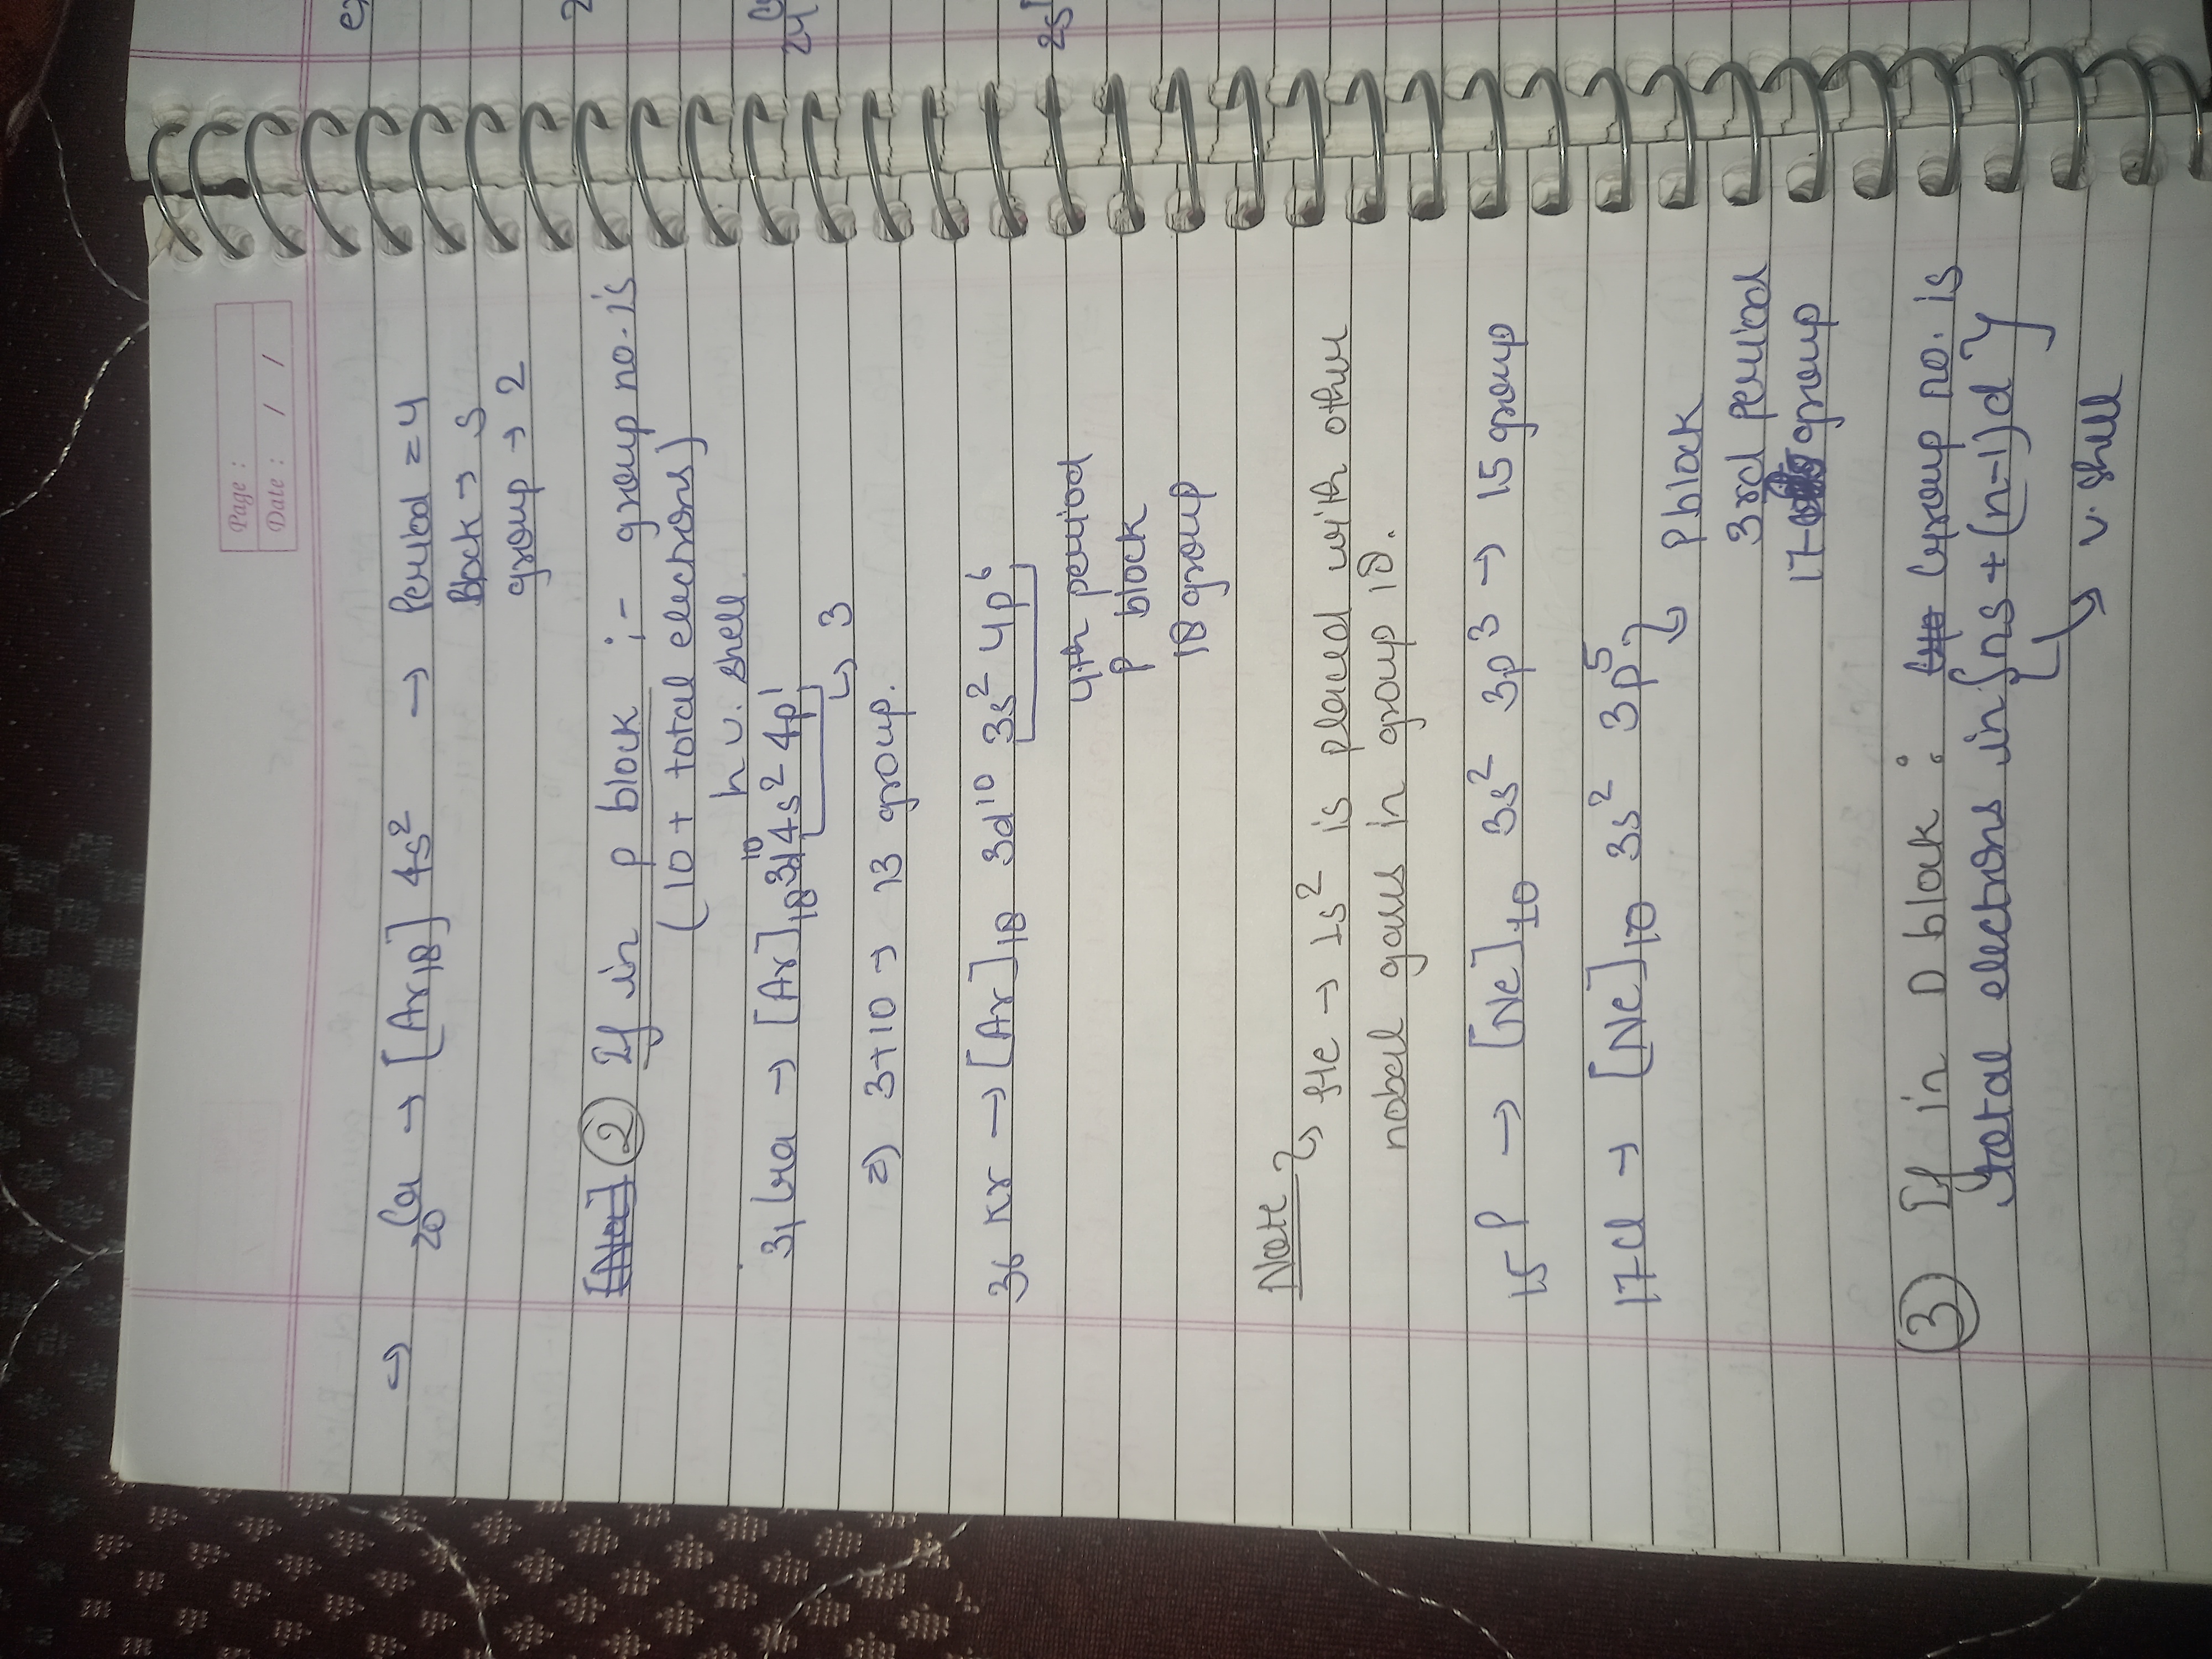 Page :
Date : / /
→ 20Ca → [Ar18] 4s² → Period = 4
Block → s
group → 2
② If in p block :- group no. is
(10 + total electrons)
in v. shell.
31Ga → [Ar]18 3d¹⁰ 4s² 4p¹
↳ 3
⇒ 3+10 → 13 group.
36 Kr → [Ar]18 3d¹⁰ 3s² 4p⁶
4th period
p block
18 group
Note → He → 1s² is placed with other
nobel gases in group 18.
15P → [Ne]10 3s² 3p³ → 15 group
17Cl → [Ne]10 3s² 3p⁵
↳ P block
3rd period
17 group
③ If in D block : Group no. is
total electrons in {ns + (n-1)d}
↳ v. shell